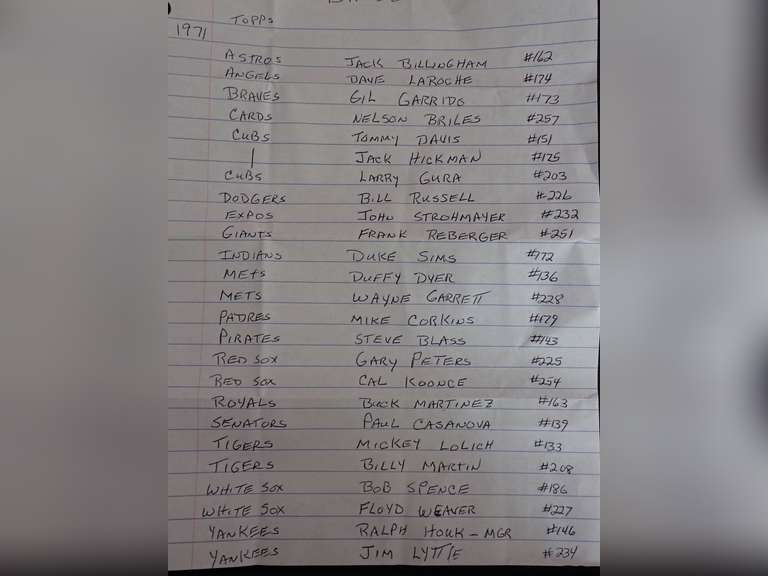 TOPPS
1971
ASTROS JACK BILLINGHAM #162
ANGELS DAVE LAROCHE #174
BRAVES GIL GARRIDO #173
CARDS NELSON BRILES #257
CUBS TOMMY DAVIS #151
| JACK HICKMAN #175
CUBS LARRY GURA #203
DODGERS BILL RUSSELL #226
EXPOS JOHN STROHMAYER #232
GIANTS FRANK REBERGER #251
INDIANS DUKE SIMS #172
METS DUFFY DYER #136
METS WAYNE GARRETT #228
PADRES MIKE CORKINS #179
PIRATES STEVE BLASS #143
RED SOX GARY PETERS #225
RED SOX CAL KOONCE #254
ROYALS BUCK MARTINEZ #163
SENATORS PAUL CASANOVA #139
TIGERS MICKEY LOLICH #133
TIGERS BILLY MARTIN #208
WHITE SOX BOB SPENCE #186
WHITE SOX FLOYD WEAVER #227
YANKEES RALPH HOUK - MGR #146
YANKEES JIM LYTTLE #234